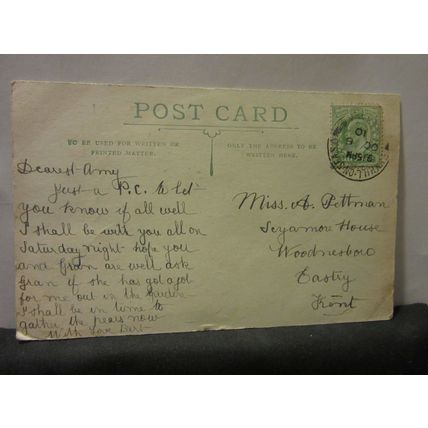 POST CARD
TO BE USED FOR WRITTEN OR
PRINTED MATTER.
ONLY THE ADDRESS TO BE
WRITTEN HERE.
Dearest Amy
Just a P.C. to let
you know if all well
I shall be with you all on
Saturday night hope you
and Gran are well ask
Gran if she has got a
for me out in the
I shall be in time to
gather the pears now
With love Bert
Miss. A. Pettman
Sycamore House
Woodnesboro
Eastry
Kent